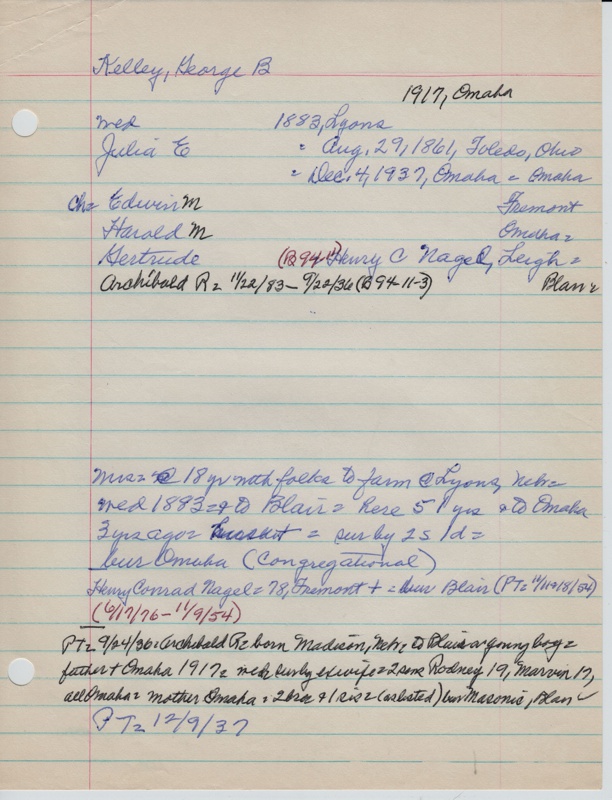 Kelley, George B
1917, Omaha
wed 1883, Lyons
Julia E = Aug. 29, 1861, Toledo, Ohio
= Dec. 4, 1937, Omaha = Omaha
ch= Edwin M Fremont
Harold M Omaha=
Gertrude Henry C Nagel, Leigh =
Archibald R= 11/22/83 - 9/22/36 (B 94-11-3) Blair=
Mrs= @ 18 yr with folks to farm @ Lyons, Nebr=
wed 1883= & to Blair = here 51 yrs & to Omaha
3 yrs ago = = sur by 2s 1d =
bur Omaha (Congregational)
Henry Conrad Nagel = 78, Fremont + = bur Blair (PT=
(6/17/76 - 11/9/54)
PT= 9/24/36= Archibald R= born Madison, Nebr= to Blair as young boy=
father + Omaha 1917= wed= sur by exwife= 2 sons Rodney 19, Marvin 17,
all Omaha= mother Omaha= 2 bro & 1 sis= (as listed) bur Masonic, Blair
PT= 12/9/37